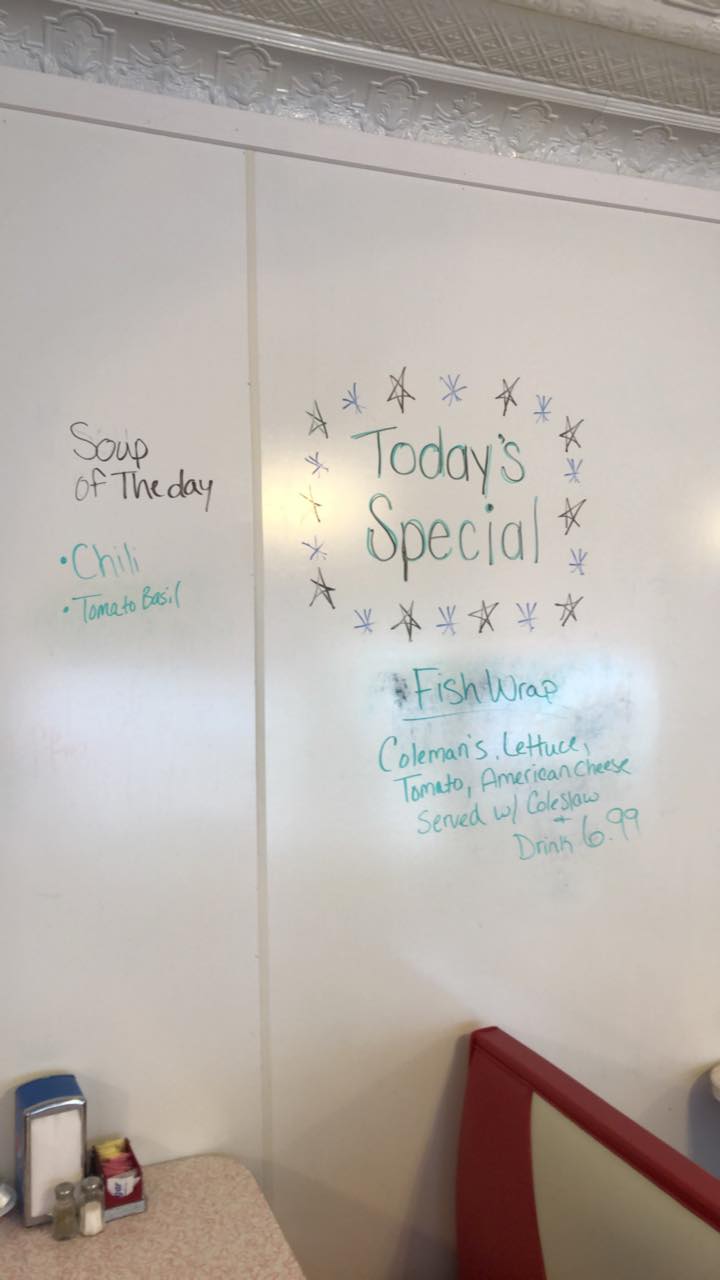 Soup
of The day
• Chili
• Tomato Basil
Today's
Special
Fish Wrap
Coleman's, Lettuce,
Tomato, American Cheese
Served w/ Coleslaw
+
Drink 6.99